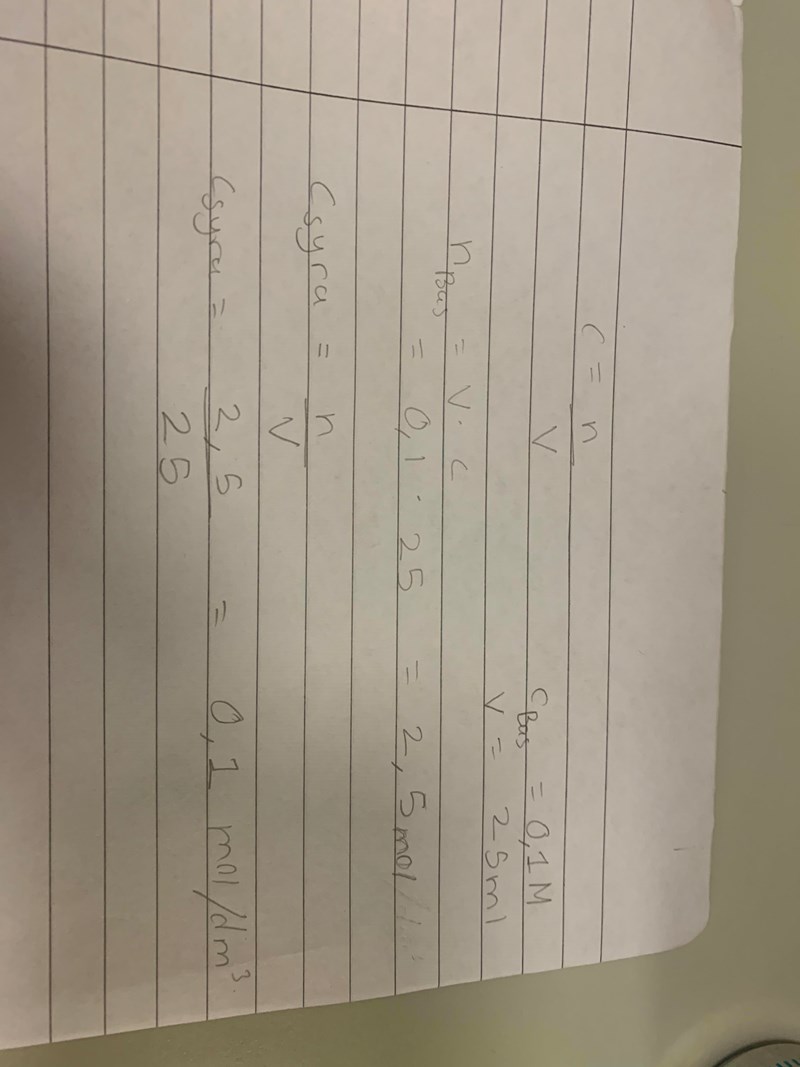 c = n
V
cBas = 0,1M
V = 25ml
nBas = V · c
= 0,1 · 25 = 2,5mol
Csyra = n
V
Csyra = 2,5 = 0,1 mol/dm³.
25